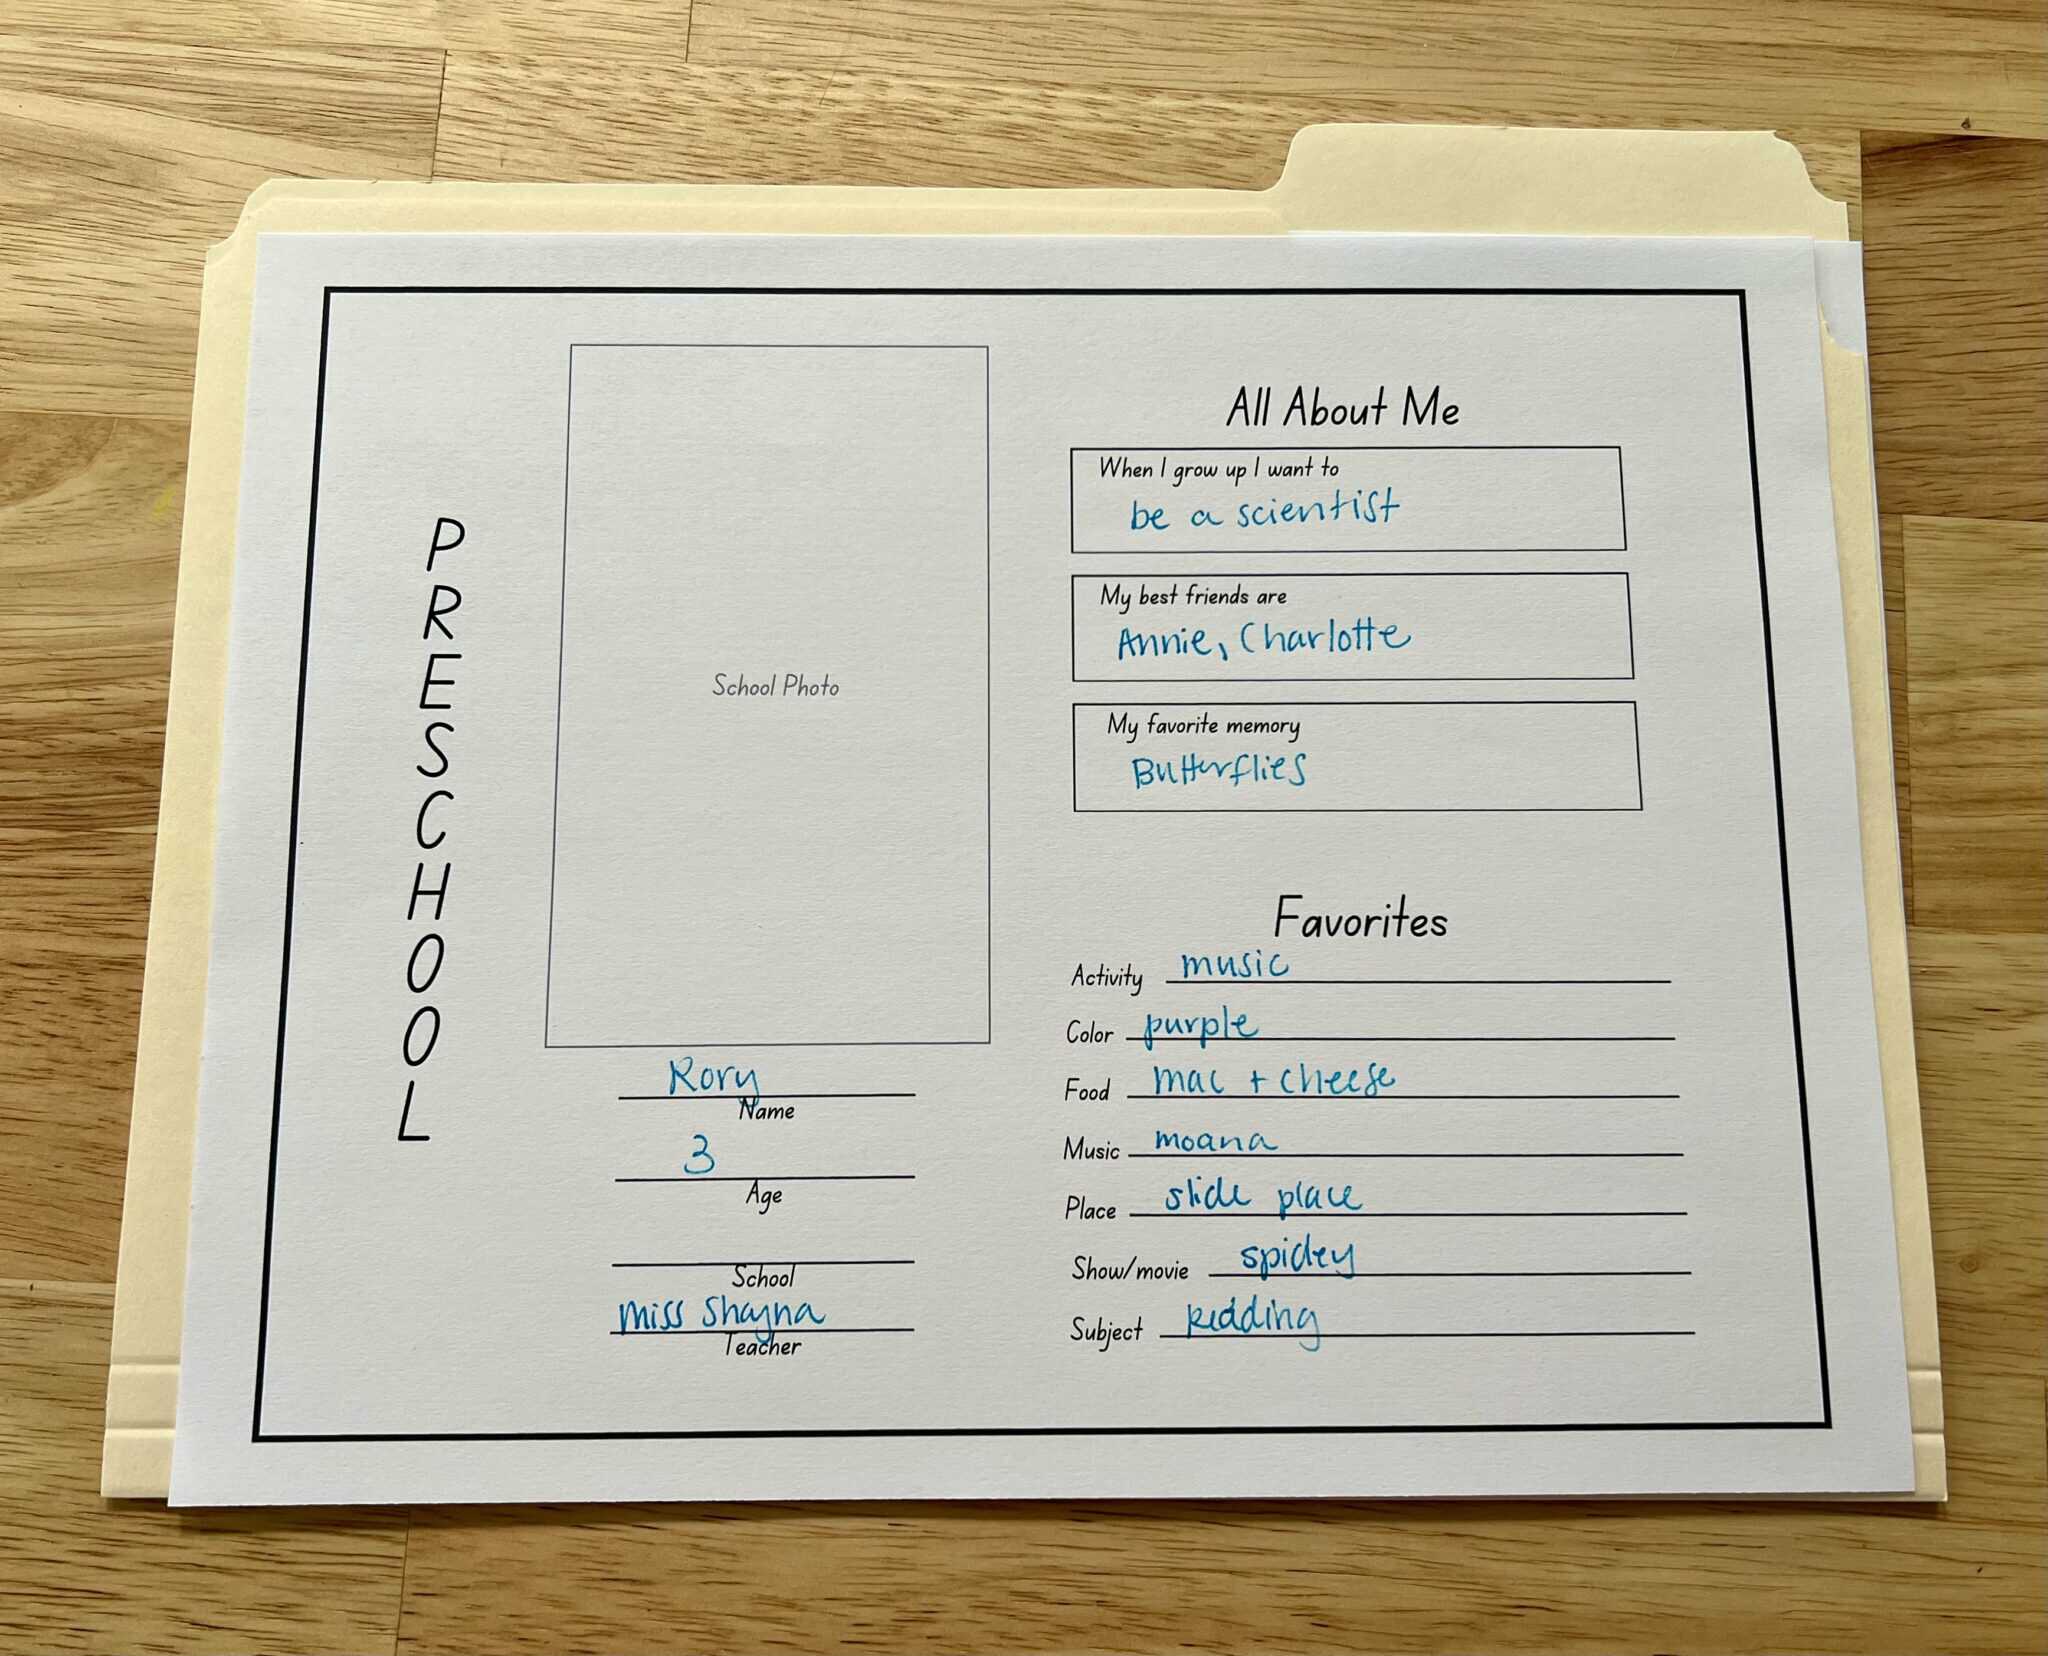 PRESCHOOL
School Photo
Rory
Name
3
Age
School
Miss Shayna
Teacher
All About Me
When I grow up I want to
be a scientist
My best friends are
Annie, Charlotte
My favorite memory
Butterflies
Favorites
Activity music
Color purple
Food mac + cheese
Music moana
Place slide place
Show/movie spidey
Subject